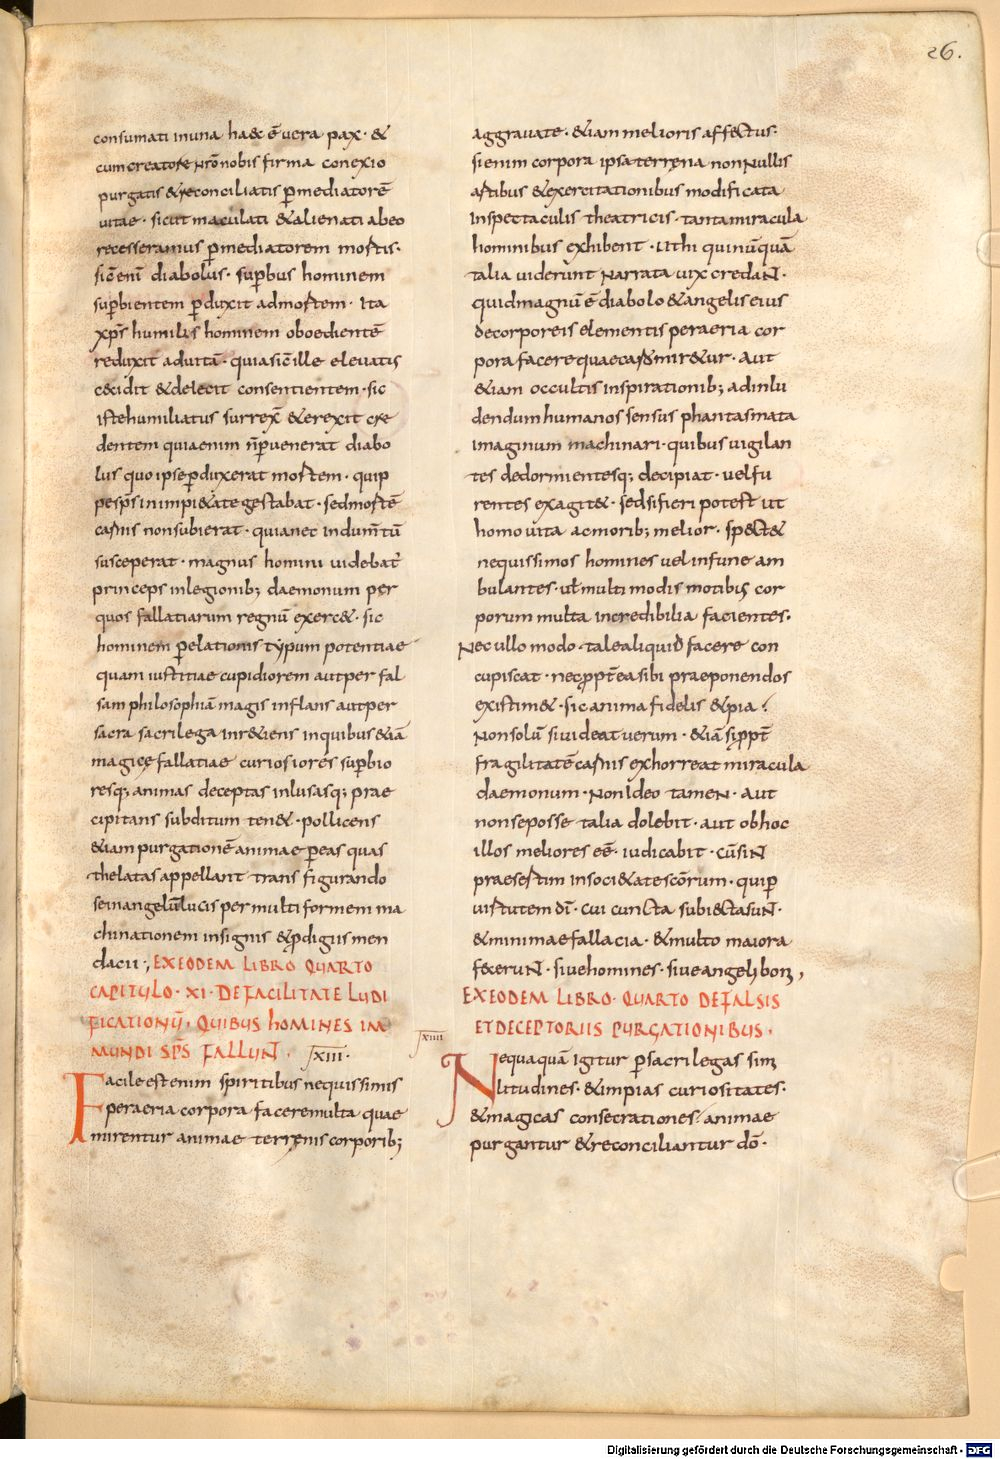 26.
consumati in una haec ē vera pax · &
cum creatore nr̄o nobis firma conexio
purgatis & reconciliatis p̄ mediatorē
vitae · sicut maculati & alienati ab eo
recesseramus p̄ mediatorem mortis·
sic enī diabolus · sup̄bus hominem
sup̄bientem p̄duxit ad mortem · Ita
xp̄s humilis hominem oboedientē
reduxit ad vitā · quia sic ille elevatis
cecidit & deiecit consentientem · sic
iste humiliatus surrex̄ & erexit cre
dentem quia enim n̄ p̄venerat diabo
lus quo ipse p̄duxerat mortem · quip
pe sp̄s in impi&ate gestabat · sed mortē
carnis non subierat · quia nec indum̄tū
susceperat · magnus homini videbat̄
princeps in legionib; daemonum per
quos fallatiarum regnū exerc& · sic
hominem p̄ elationis typum potentiae
quam iustitiae cupidiorem aut per fal
sam philosophiā magis inflans aut per
sacra sacrilega inr&iens in quibus &iā
magice fallatiae curiosiores sup̄bio
resq; animas deceptas inlusasq; prae
cipitans subditum ten& · pollicens
&iam purgationē animae p̄ eas quas
thelatas appellant trans figurando
se in angelū lucis per multiformem ma
chinationem in signis & p̄digiis men
dacii ·, EX EODEM LIBRO QUARTO
CAPITULO · XI · DE FACILITATE LUDI
FICATIONŪ · QUIBUS HOMINES IM
MUNDI SP̄S FALLUNT · XIII ·
Facile est enim spiritibus nequissimis
per aeria corpora facere multa quae
mirentur animae terrenis corporib;
aggravate · &iam melioris affectus·
si enim corpora ipsa terrena nonnullis
artibus & exercitationibus modificata
in spectaculis theatricis · tanta miracula
hominibus exhibent · ut hi qui nūquā
talia viderunt narrata vix credant ·
quid magnū ē diabolo & angelis eius
de corporeis elementis per aeria cor
pora facere quae caro mir&ur · Aut
&iam occultis inspirationib; ad inlu
dendum humanos sensus phantasmata
imaginum machinari · quibus vigilan
tes dedormientesq; decipiat · vel fu
rentes exagit& · sed si fieri potest ut
homo vita ac morib; melior · spect&
nequissimos homines vel in fune am
bulantes · ut multi modis motibus cor
porum multa incredibilia facientes·
Nec ullo modo · tale aliquid facere con
cupiscat · nec ꝓpt̄ ea sibi praeponendos
existim& · sic anima fidelis & pia ·
Non solū si videat verum · &iā si ꝓpt̄
fragilitatē carnis exhorreat miracula
daemonum · non ideo tamen · aut
non se posse talia dolebit · aut ob hoc
illos meliores eē · iudicabit · cū sint
praesertim in soci&ate sc̄orum · qui p̄
virtutem dī · cui cuncta subiecta sunt ·
& minimae fallacia · & multo maiora
fecerunt · sive homines · sive angeli boni,
EX EODEM LIBRO · QUARTO DE FALSIS
ET DECEPTORIIS PURGATIONIBUS ·
XIIII
Nequaquā igitur p̄ sacrilegas simi
litudines · & impias curiositates·
& magicas consecrationes · animae
purgantur & reconciliantur dō ·
Digitalisierung gefördert durch die Deutsche Forschungsgemeinschaft · DFG